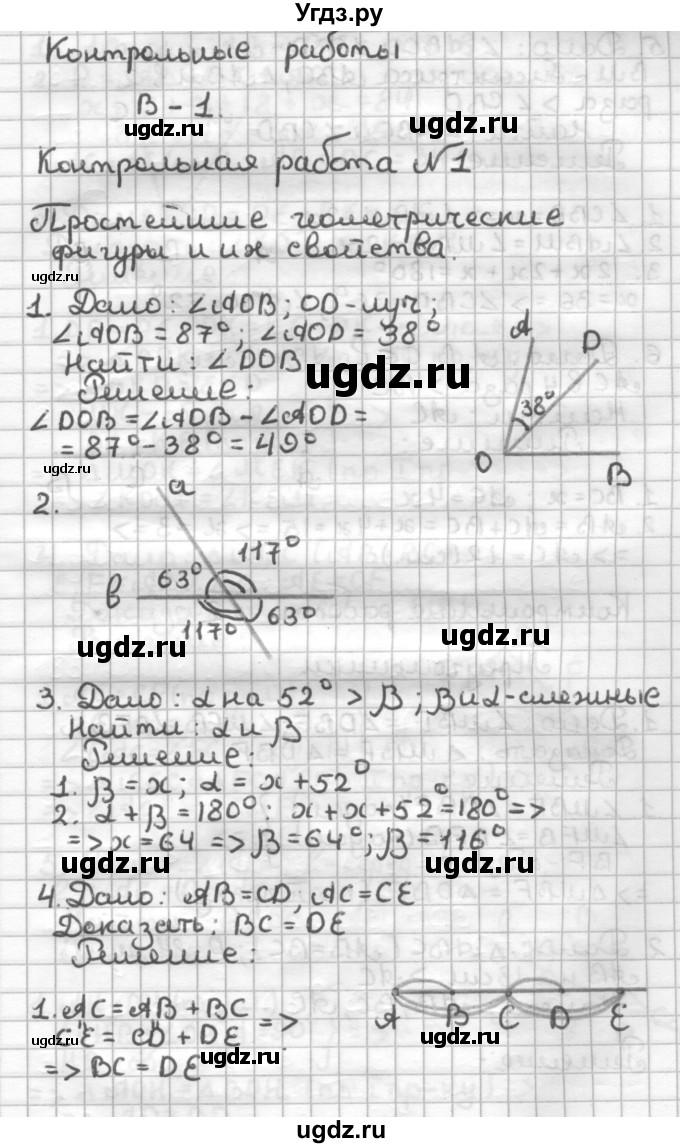 Угдз.ру
Контрольные работы
В - 1.
ugdz.ru
ugdz.ru
Контрольная работа №1
Простейшие геометрические
фигуры и их свойства.
ugdz.ru
1. Дано: ∠AOB; OD-луч;
∠AOB = 87°; ∠AOD = 38°
Найти: ∠DOB
Решение:
∠DOB = ∠AOB - ∠AOD =
= 87° - 38° = 49°
ugdz.ru
ugdz.ru
A
D
38°
O
B
2.
a
117°
63°
в
63°
117°
ugdz.ru
ugdz.ru
3. Дано: α на 52° > β; β и α-смежные
Найти: α и β
Решение:
1. β = x; α = x + 52°
2. α + β = 180°: x + x + 52° = 180° =>
=> x = 64 => β = 64°; β = 116°
ugdz.ru
ugdz.ru
4. Дано: AB = CD; AC = CE
Доказать: BC = DE
Решение:
1. AC = AB + BC
CE = CD + DE =>
=> BC = DE
A B C D E
ugdz.ru
ugdz.ru
ugdz.ru
ugdz.ru